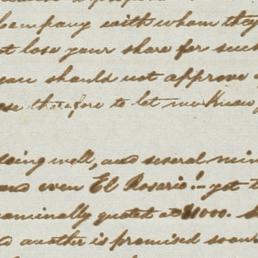 company with whom they
t lose your share for such
you should not approve
therefore to let me know
doing well, and several
and even El Rosario! - yet
nominally quoted at $1000.
d another is promised soon